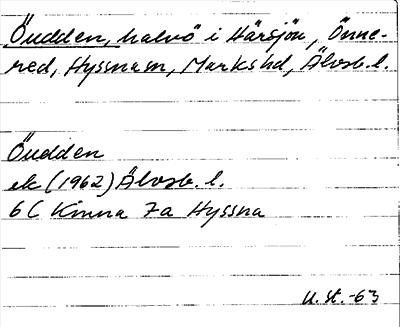 Öudden, halvö i Härsjön, Önne-
red, Hyssnasn, Marks hd, Älvsb. l.
Öudden
ek (1962) Älvsb. l.
6 C Kinna 7a Hyssna
U. st. -63